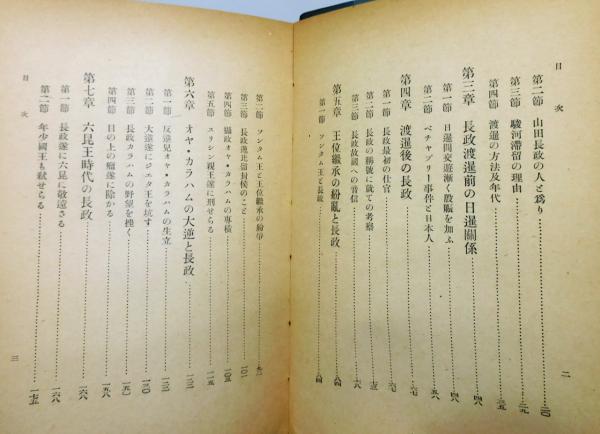 目次
第二節 山田長政の人と爲り……二〇
第三節 駿河滯留の理由……二九
第四節 渡暹の方法及年代……三五
第三章 長政渡暹前の日暹關係……四八
第一節 日暹間交遊漸く殷賑を加ふ……四八
第二節 ペチャブリー事件と日本人……五八
第四章 渡暹後の長政……六七
第一節 長政最初の仕官……六七
第二節 長政の稱號に就ての考察……七三
第三節 長政故國への音信……七八
第五章 王位繼承の紛亂と長政……八四
第一節 ソンタム王と長政……八四
二
第二節 ソンタム王と王位繼承の紛爭……九一
第三節 長政暹北侶封侯のこと……一〇一
第四節 攝政オヤ・カラハムの專橫……一〇五
第五節 スリシン親王遂に刑せらる……一一五
第六章 オヤ・カラハムの大逆と長政……一二二
第一節 反逆兒オヤ・カラハムの生立……一二二
第二節 大逆遂にジエタ王を坑す……一三〇
第三節 長政カラハムの野望を挫く……一五〇
第四節 目の上の瘤遂に除かる……一五八
第七章 六昆王時代の長政……一六八
第一節 長政遂に六昆に敬遠さる……一六八
第二節 年少國王も弑せらる……一七五
目次
三